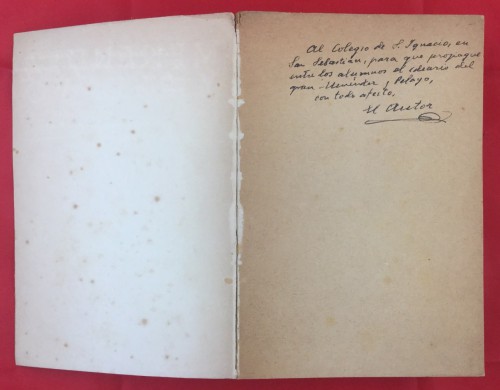 Al Colegio de S. Ignacio, en
San Sebastián, para que propague
entre los alumnos el ideario del
gran Menéndez y Pelayo,
con todo afecto,
El Autor